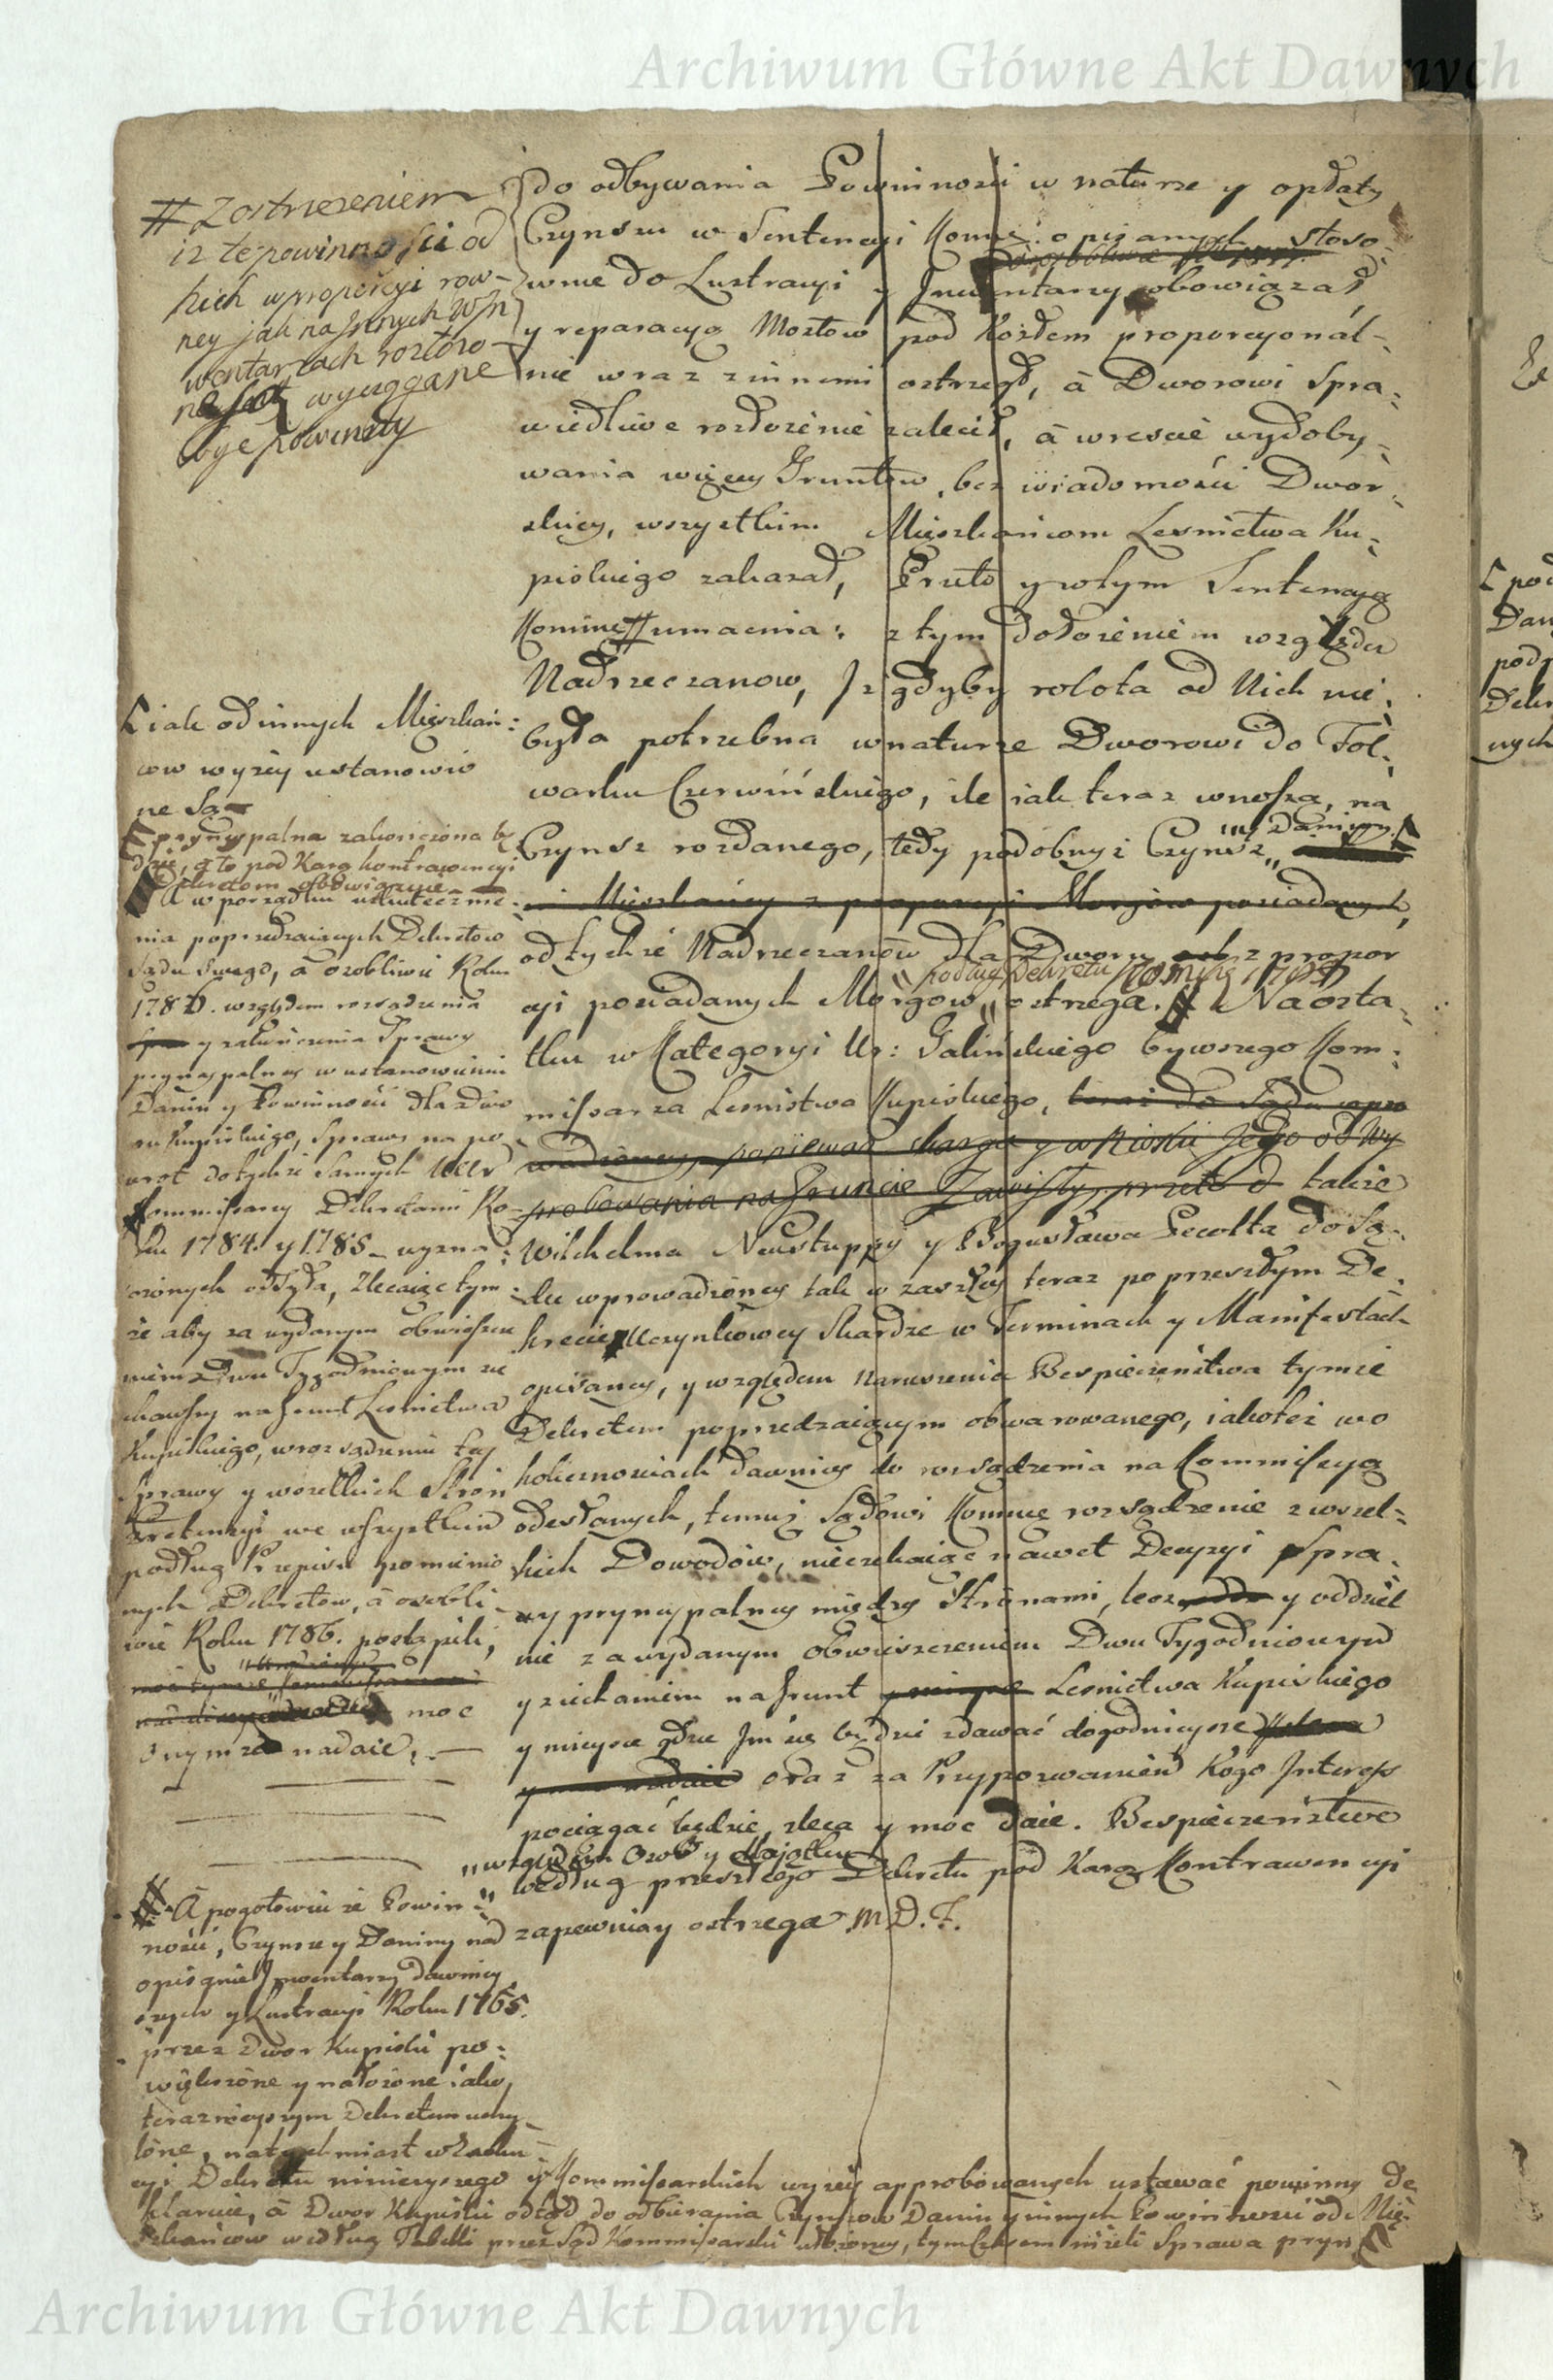 Archiwum Główne Akt Dawnych
do odbywania Powinności w naturze y opłaty
Czynszu w Sentencyi Kommis: opisanych stoso-
wnie do Lustracyi y Inwentarzy obowiązał,
y reparacyą Mostow pod Kosztem proporcyonal-
nie wraz z innemi ostrzegł, à Dworowi Spra-
wiedliwe rozłożenie zalecił, à wreście wydoby-
wania więcey Gruntow, bez wiadomości Dwor-
skiey, wszystkim Mieszkańcom Lesnictwa Ku-
piskiego zakazał, Przeto y w tym Sentencyą
Kommis # umacnia: z tym dołożeniem względu
Nadrzeczanow, Iż gdyby robota od Nich nie
była potrzebna w naturze Dworowi do Fol-
warku Czerwińskiego, ile iak teraz wnoszą, na
Czynsz rozdanego, tedy podobnyż Czynsz " y Daniny
Mieszkańcy z proporcyi Morgow posiadanych,
od tychże Nadrzeczanow dla Dworu z propor
cyi posiadanych Morgow " ostrzega. # Na osta-
podług Dekretu Kommis: 1785
tku w Kategoryi Ur: Galińskiego bywszego Kom-
missarza Lesnictwa Kupiskiego, teraz do Sądu wpro
wadzoney, ponieważ skarga y wnioski Jego od Wy
probowania na Gruncie Zawisły, przeto takze
Wilchelma Neustuppy y Bogusława Pecolta do Są-
du wprowadzoney tak w zaszłey teraz po przeszłym De-
krecie Uczynkowey Skardze w Terminach y Manifestach
opisaney, y względem naruszenia Bespieczeństwa tymże
Dekretem poprzedzaiącym obwarowanego, iakoteż w o
kolicznościach dawniey do rozsądzenia na Kommissyą
odesłanych, temuż Sądowi Kommis rozsądzenie z wszel-
kich Dowodów, nieczekaiąc nawet Decyzyi Spra-
wy pryncypalney między Stronami, lecz y oddziel
nie za wydanym obwieszczeniem Dwu Tygodniowym
y ziechaniem na Grunt Lesnictwa Kupiskiego
y mieysce gdzie Im się będzie zdawać dogodnieysze
oraz za Przypozwaniem Kogo Interess
pociągać będzie, zleca y moc daie. Bespieczeństwo
" względem Osob y Maiątku
według przeszłego Dekretu pod Karą Kontrawencyi
zapewnia y ostrzega M.D.F.
# Zostrzeżeniem
iż te powinności od
nich w proporcyi row-
ney jak na Innych w In
wentarzach rozłożo-
ne są wyciągane
być powinny
iak od innych Mieszkań-
cow wyżey ustanowio
ne są
pryncypalna zakończona bę
dzie, a to pod Karą kontrawencyi
Dekretom obowiązuie
A w porządku uskutecznie-
nia poprzedzaiących Dekretow
Sądu Swego, à osobliwie Roku
1786. względem rozsądzenia
y zakończenia Sprawy
pryncypalney w ustanowieniu
Danin y Powinności dla Dwo
ru Kupiskiego, Sprawę na po
wrot do tychże Samych Urr
Kommissarzy Dekretami Ro-
ku 1784. y 1785 wyzna-
czonych odsyła, Zlecaiąc tym-
że aby za wydanym obwieszcze
niem Dwu Tygodniowym zie
chawszy na Grunt Lesnictwa
Kupiskiego, w rozsądzeniu tey
Sprawy y wszelkich Stron
Pretensyi we wszystkim
podług Przepisu pomienio
nych Dekretow, à osobli-
wie Roku 1786. postąpili,
moc
onymże nadaie. —
# A pogotowiu że Powin-
ności, Czynsze y Daniny nad
opisanie Inwentarzy dawniey
szych y Lustracyi Roku 1765.
przez Dwor Kupiski po-
większone y nałożone iako
teraznieyszym Dekretem uchy-
lone, natychmiast w Exeku-
cyi Dekretu ninieyszego y Kommissarskich wyżey approbowanych ustawać powinny De
klaruie, à Dwor Kupiski odtąd do odbierania Czynszow Danin y innych Powinności od Mie-
szkańcow według Tabelli przez Sąd Kommissarski ułożoney, tymczasem niżeli Sprawa pryn
Archiwum Główne Akt Dawnych